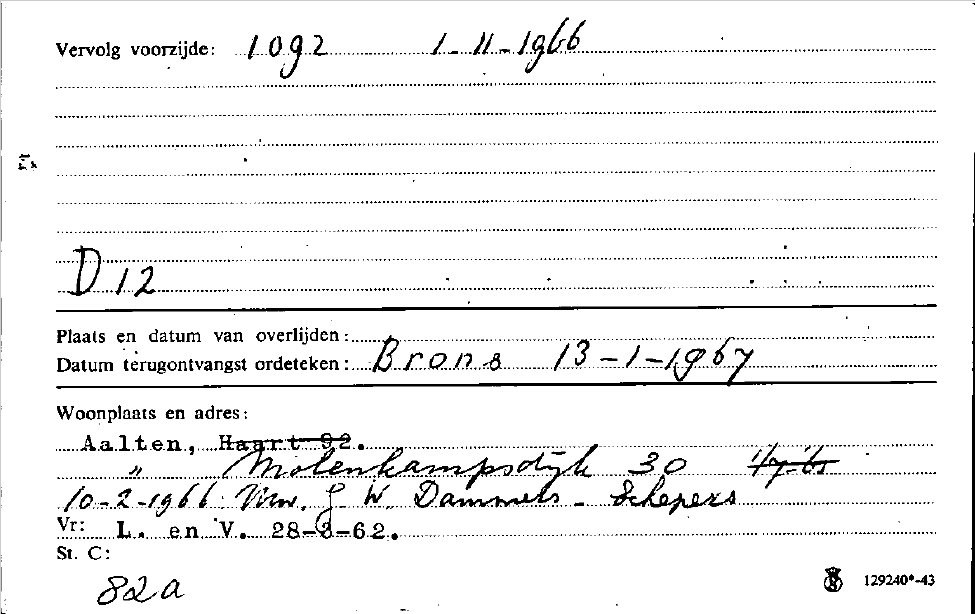 Vervolg voorzijde: 1092 1-11-1966
D 12
Plaats en datum van overlijden:
Datum terugontvangst ordeteken: Brons 13-1-1967
Woonplaats en adres:
Aalten, Haart 92.
" Molenkampsdijk 30
10-2-1966 Mw. J. W. Dammers - Schepers
Vr: L. en V. 28-3-62.
St. C:
82a
129240*-43